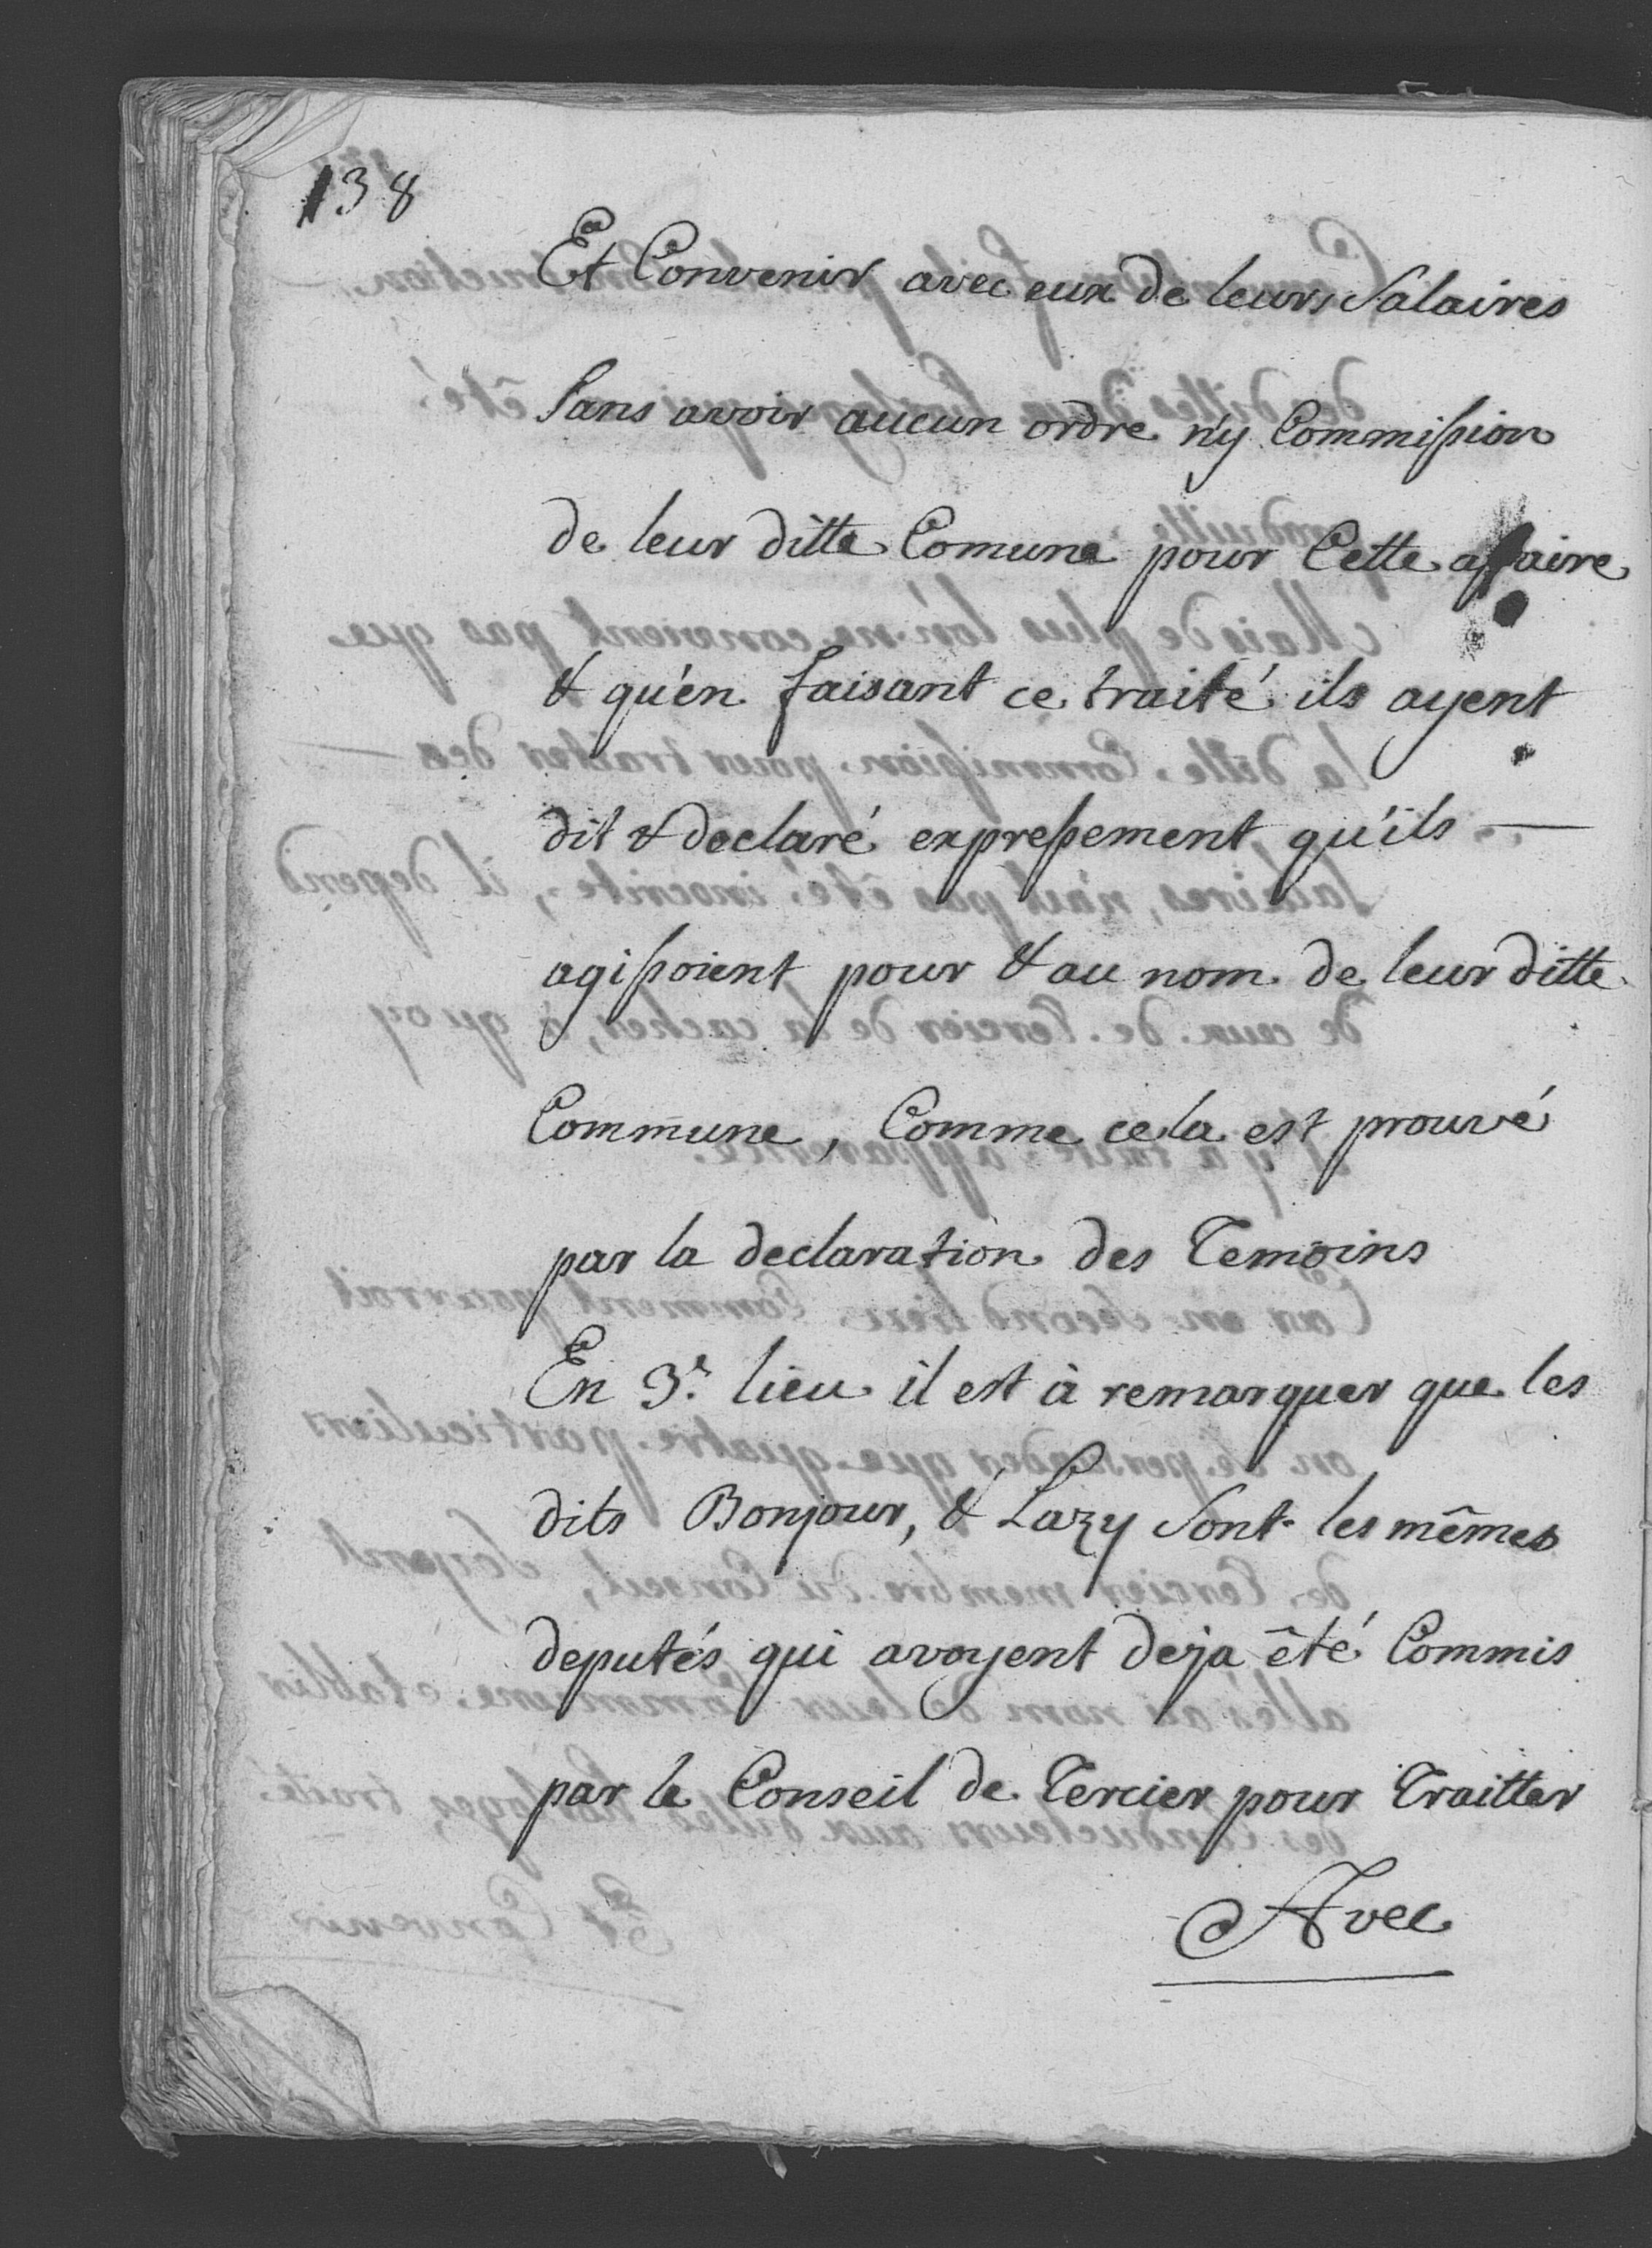 138
Et Convenir avec eux de leurs Salaires
Sans avoir aucun ordre n'y Commission
de leur ditte Comune pour Cette affaire
& qu'en faisant ce traité ils ayent
dit & declaré expressement qu'ils —
agissoient pour & au nom de leur ditte
Commune, Comme cela est prouvé
par la declaration des Temoins
En 3e. lieu il est à remarquer que les
dits Bonjour, & Lazy Sont les mêmes
deputés qui avoyent deja êté Commis
par le Conseil de Cercier pour Traitter
Avec